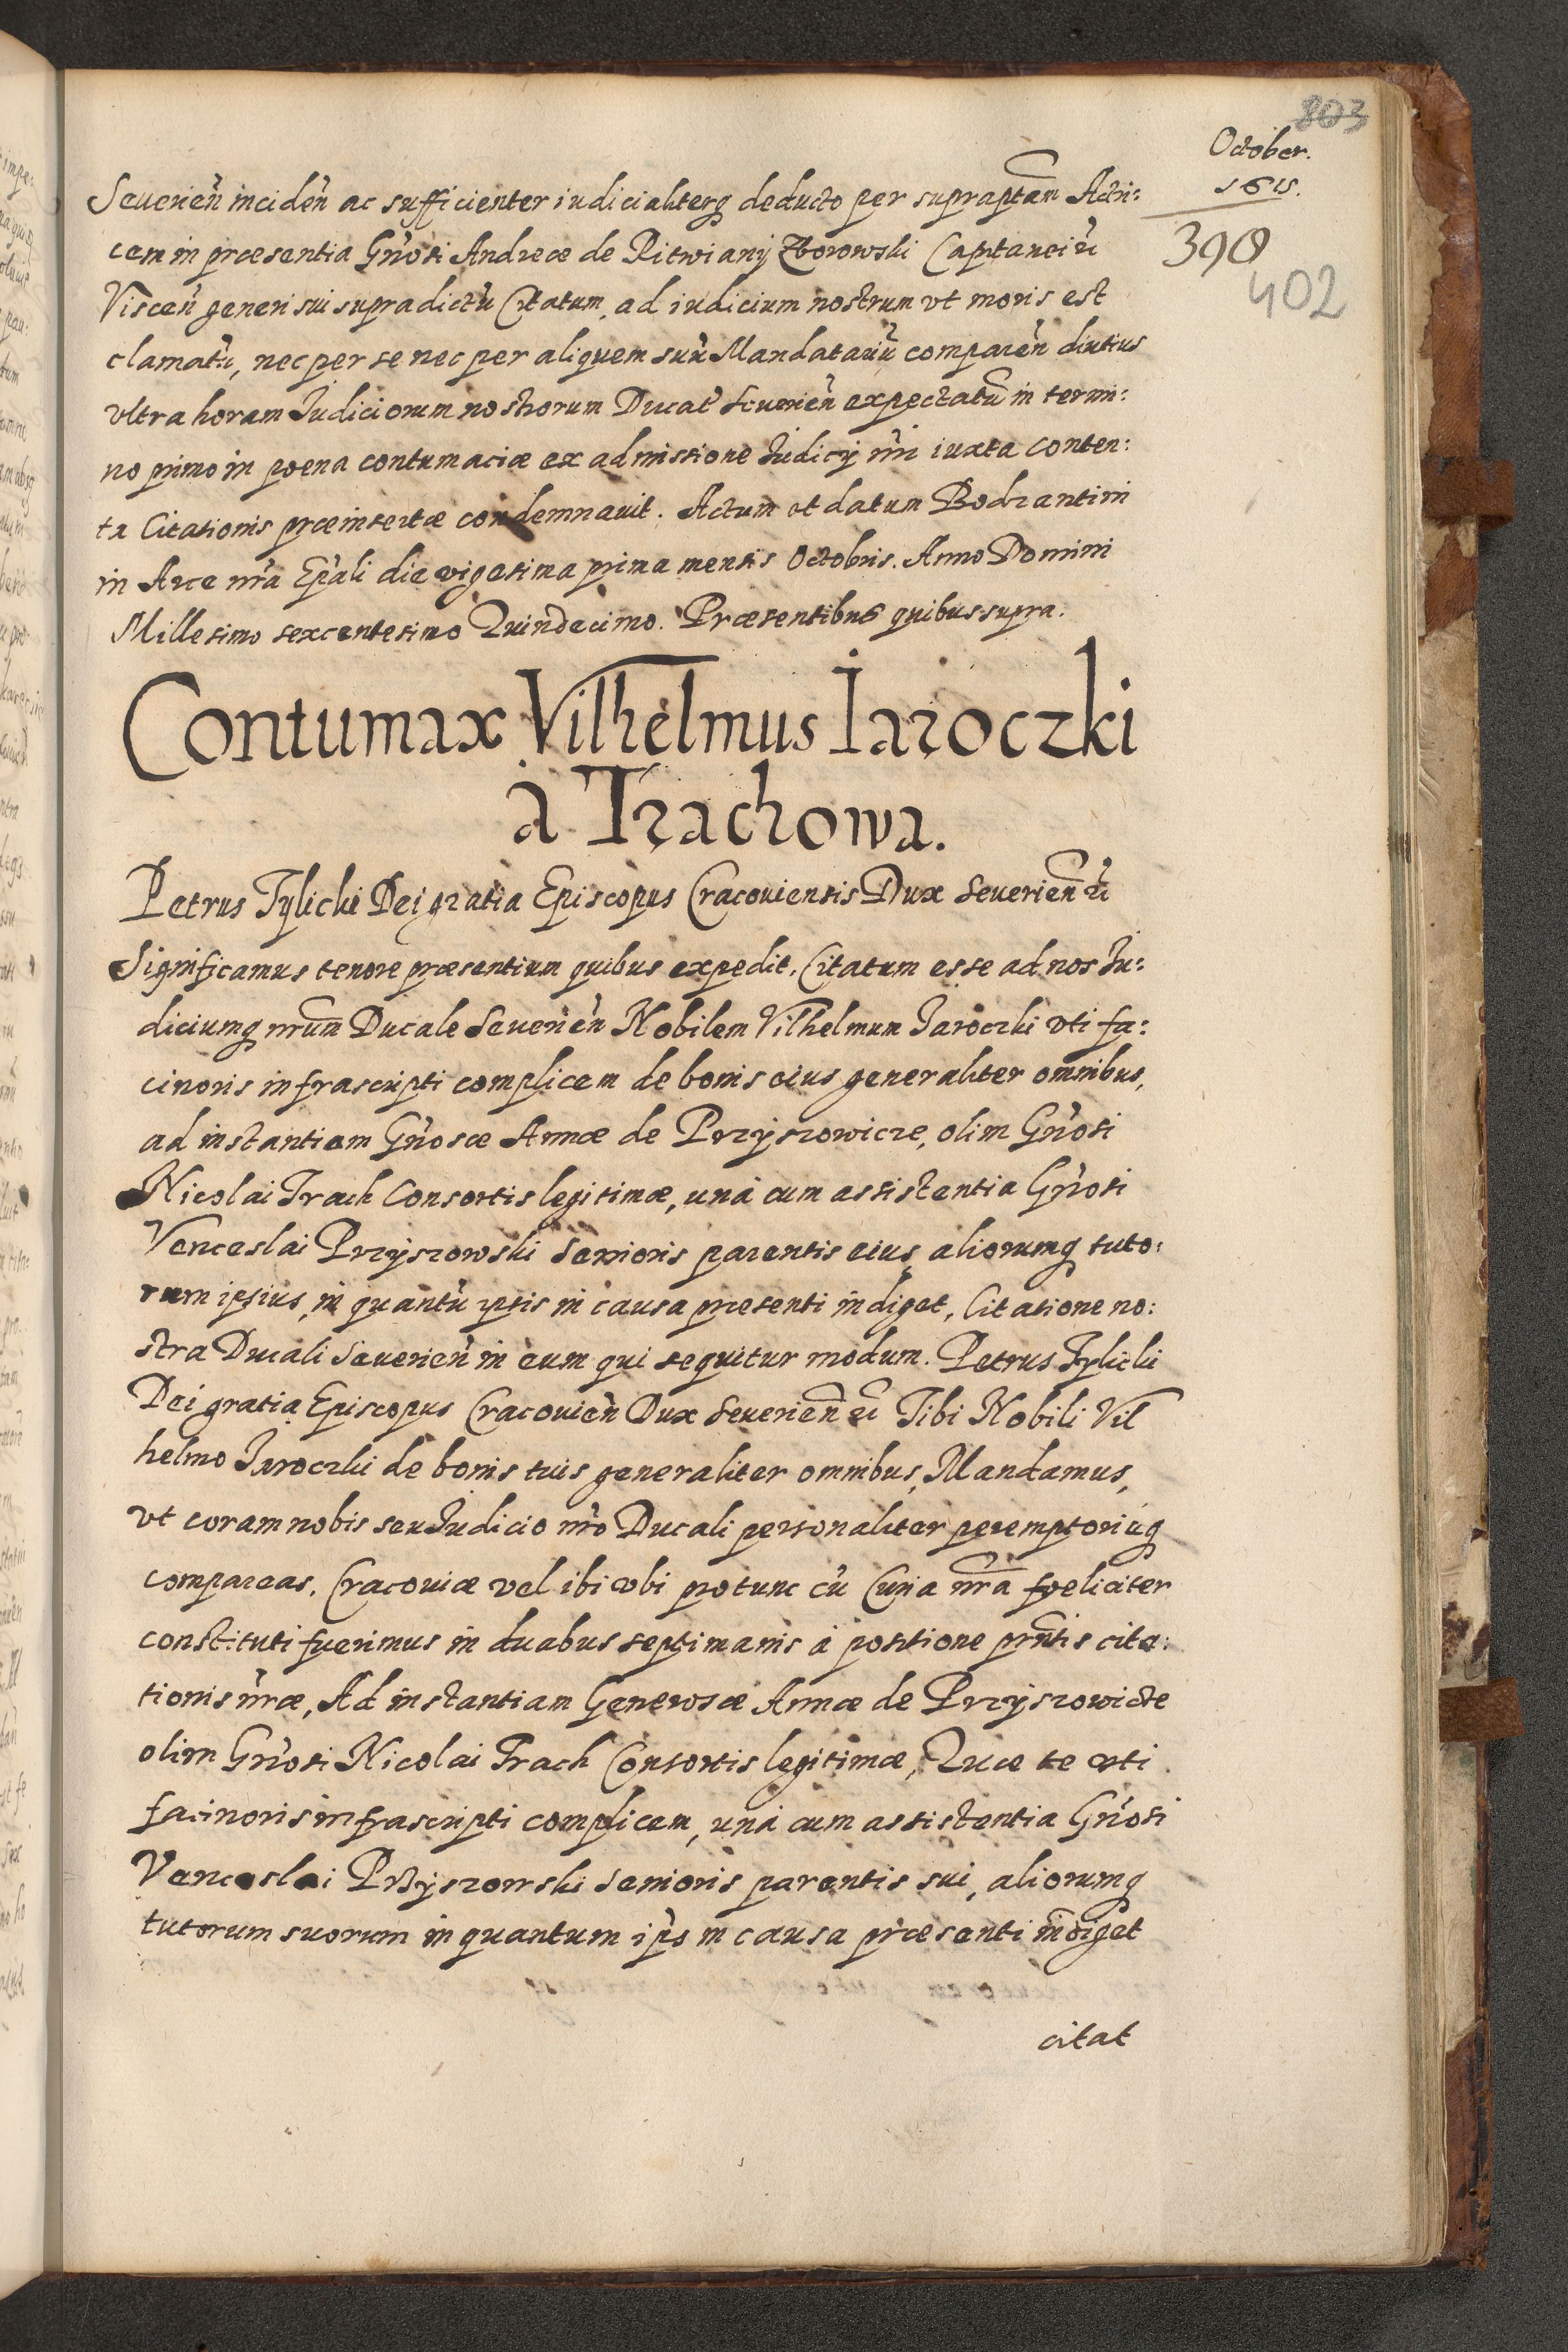 803
October.
1615.
398
402
Seuerień incideń ac sufficienter iudicialiterq deducto per supraptam Actri:
cem in præsentia Gnosi Andreæ de Ritwiany Zborowski Captanei &c
Visceń generi sui supradictũ Citatum, ad iudicium nostrum vt moris est
clamatũ, nec per se nec per aliquem suũ Mandatariũ compareń diutius
vltra horam Iudiciorum nostrorum Ducat Seuerień expectatũ in termi:
no primo in poena contumaciæ ex admissione Iudicij nri iuxta conten:
ta Citationis præinsertæ condemnauit. Actum et datum Bodzantini
in Arce nra Epali die vigesima prima mensis Octobris. Anno Domini
Millesimo sexcentesimo Quindecimo. Præsentibus quibus supra.
Contumax Vilhelmus Iaroczki
à Trachowa.
Petrus Tylicki Dei gratia Episcopus Cracouiensis Dux Seuerień &c
Significamus tenore præsentium quibus expedit. Citatum esse ad nos Iu:
diciumq nrum Ducale Seuerień Nobilem Vilhelmum Iaroczki vti fa:
cinoris infrascripti complicem de bonis eius generaliter omnibus,
ad instantiam Gnosæ Annæ de Przyszowicze, olim Gnosi
Nicolai Trach Consortis legitimæ, unà cum assistentia Gnosi
Venceslai Przyszowski Senioris parentis eius, aliorumq tuto:
rum ipsius, in quantũ ipsis in causa præsenti indiget, Citatione no:
stra Ducali Seuerień in eum qui sequitur modum. Petrus Tylicki
Dei gratia Episcopus Cracouień Dux Seuerień &c Tibi Nobili Vil
helmo Iaroczki de bonis tuis generaliter omnibus, Mandamus,
vt coram nobis seu Iudicio nro Ducali personaliter peremptorieq
compareas. Cracouiæ vel ibi vbi protunc cũ Curia nra foeliciter
constituti fuerimus in duabus septimanis à positione prntis cita:
tionis nræ, Ad instantiam Generosæ Annæ de Przyszowicze
olim Gnosi Nicolai Trach Consortis legitimæ, Quæ te vti
facinoris infrascripti complicem, unà cum assistentia Gnosi
Venceslai Przyszowski Senioris parentis sui, aliorumq
tutorum suorum in quantum ips in causa præsenti indiget
citat